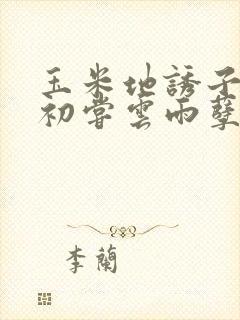 玉米地誘子
初嘗雲雨孽
李蘭